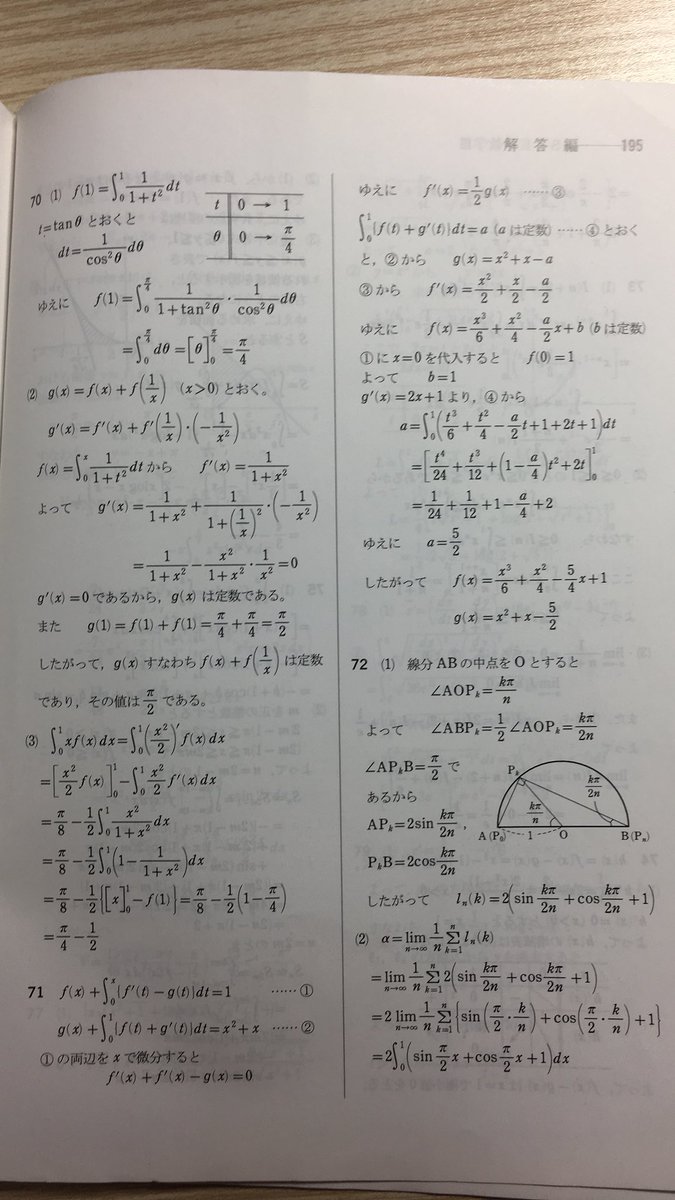 解答編――195
70 (1) f(1)=∫₀¹ 1/(1+t²) dt
t=tanθ とおくと
dt=1/cos²θ dθ
t | 0 → 1
θ | 0 → π/4
ゆえに f(1)=∫₀^{π/4} 1/(1+tan²θ)・1/cos²θ dθ
=∫₀^{π/4} dθ=[θ]₀^{π/4}=π/4
(2) g(x)=f(x)+f(1/x) (x>0) とおく。
g′(x)=f′(x)+f′(1/x)・(−1/x²)
f(x)=∫₀ˣ 1/(1+t²) dt から f′(x)=1/(1+x²)
よって g′(x)=1/(1+x²)+1/(1+(1/x)²)・(−1/x²)
=1/(1+x²)−x²/(1+x²)・1/x²=0
g′(x)=0 であるから，g(x) は定数である。
また g(1)=f(1)+f(1)=π/4+π/4=π/2
したがって，g(x) すなわち f(x)+f(1/x) は定数
であり，その値は π/2 である。
(3) ∫₀¹ xf(x)dx=∫₀¹ (x²/2)′ f(x)dx
=[x²/2 f(x)]₀¹−∫₀¹ x²/2 f′(x)dx
=π/8−1/2∫₀¹ x²/(1+x²) dx
=π/8−1/2∫₀¹ (1−1/(1+x²))dx
=π/8−1/2{[x]₀¹−f(1)}=π/8−1/2(1−π/4)
=π/4−1/2
71 f(x)+∫₀ˣ{f′(t)−g(t)}dt=1 ……①
g(x)+∫₀¹{f(t)+g′(t)}dt=x²+x ……②
①の両辺を x で微分すると
f′(x)+f′(x)−g(x)=0
ゆえに f′(x)=1/2 g(x) ……③
∫₀¹{f(t)+g′(t)}dt=a (a は定数) ……④ とおく
と，②から g(x)=x²+x−a
③から f′(x)=x²/2+x/2−a/2
ゆえに f(x)=x³/6+x²/4−a/2 x+b (b は定数)
①に x=0 を代入すると f(0)=1
よって b=1
g′(x)=2x+1 より，④から
a=∫₀¹(t³/6+t²/4−a/2 t+1+2t+1)dt
=[t⁴/24+t³/12+(1−a/4)t²+2t]₀¹
=1/24+1/12+1−a/4+2
ゆえに a=5/2
したがって f(x)=x³/6+x²/4−5/4 x+1
g(x)=x²+x−5/2
72 (1) 線分 AB の中点を O とすると
∠AOPₖ=kπ/n
よって ∠ABPₖ=1/2∠AOPₖ=kπ/2n
∠APₖB=π/2 で
あるから
APₖ=2sin kπ/2n ，
PₖB=2cos kπ/2n
Pₖ
kπ/2n
kπ/n
A (P₀) 1 O B (Pₙ)
したがって lₙ(k)=2(sin kπ/2n+cos kπ/2n+1)
(2) α=lim_{n→∞} 1/n Σ_{k=1}^{n} lₙ(k)
=lim_{n→∞} 1/n Σ_{k=1}^{n} 2(sin kπ/2n+cos kπ/2n+1)
=2 lim_{n→∞} 1/n Σ_{k=1}^{n} {sin(π/2・k/n)+cos(π/2・k/n)+1}
=2∫₀¹(sin π/2 x+cos π/2 x+1)dx